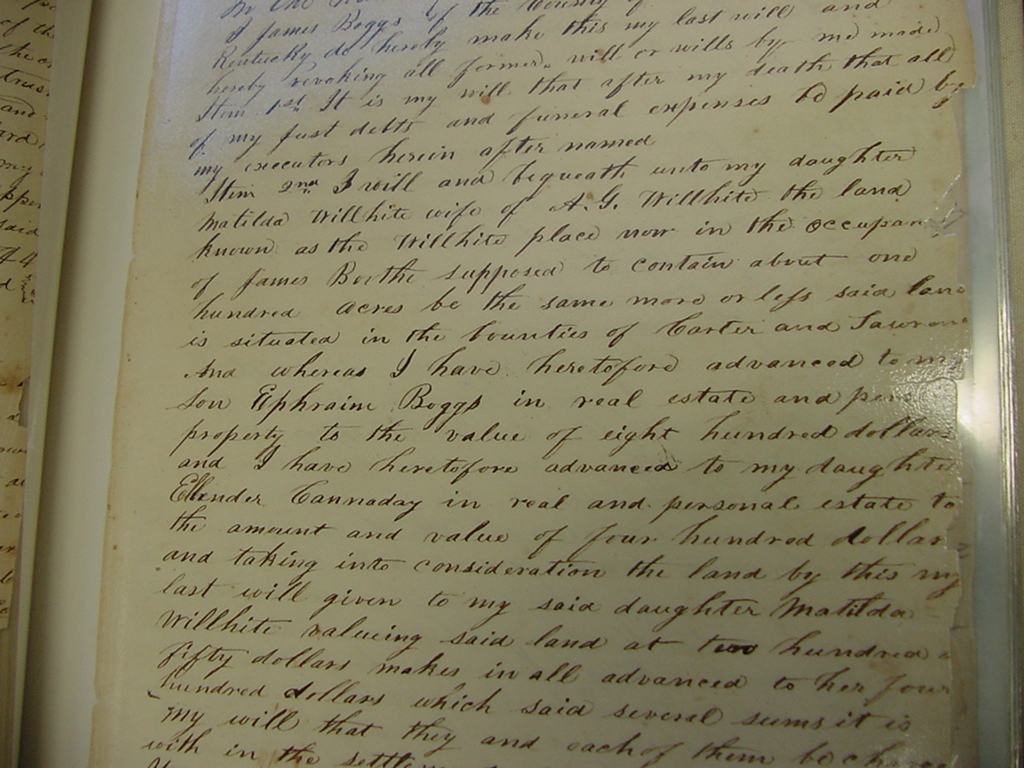 In the
I James Boggs of the County of
Kentucky do hereby make this my last will and
hereby revoking all former will or wills by me made
Item 1st It is my will that after my death that all
of my just debts and funeral expenses be paid by
my executors herein after named
Item 2nd I will and bequeath unto my daughter
Matilda Willhite wife of A. G. Willhite the land
known as the Willhite place now in the occupan
of James Boothe supposed to contain about one
hundred acres be the same more or less said land
is situated in the Counties of Carter and Lawrence
And whereas I have heretofore advanced to my
son Ephraim Boggs in real estate and pers
property to the value of eight hundred dollars
and I have heretofore advanced to my daughte
Ellender Cannaday in real and personal estate to
the amount and value of four hundred dollar
and taking into consideration the land by this my
last will given to my said daughter Matilda
Willhite valueing said land at two hundred
fifty dollars makes in all advanced to her four
hundred dollars which said several sums it is
my will that they and each of them be charge
with in the settle